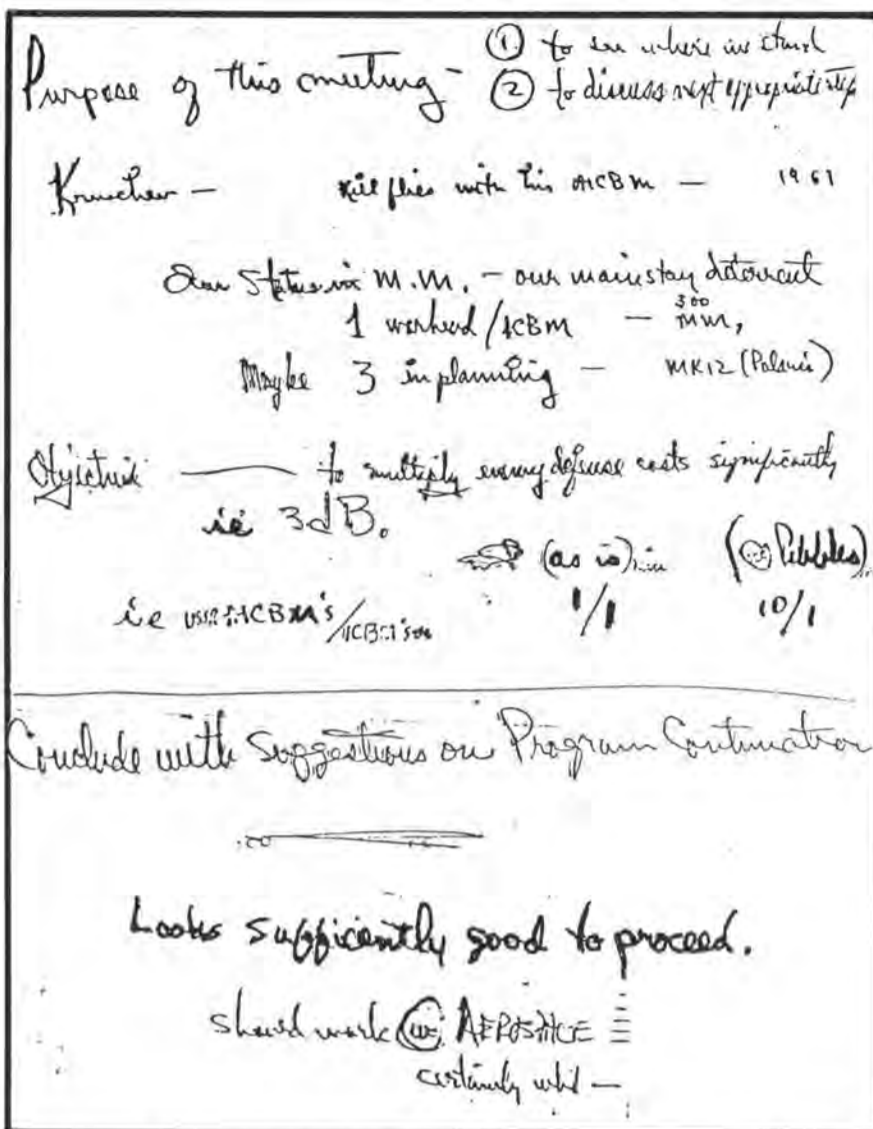 Purpose of this meeting - ① to see where we stand
② to discuss next appropriate step
Kruschev — kill flies with his AICBM — 1961
Our Status is M.M. - our mainstay deterrent
1 warhead/ICBM — 300 MM,
Maybe 3 in planning — MK12 (Polaris)
Objective —— to multiply enemy defense costs significantly
ie 3dB.
(as is) (Pebbles)
ie USSR AICBM's/ICBM's 1/1 10/1
Conclude with Suggestions on Program Continuation
Looks sufficiently good to proceed.
should work AEROSPACE
certainly